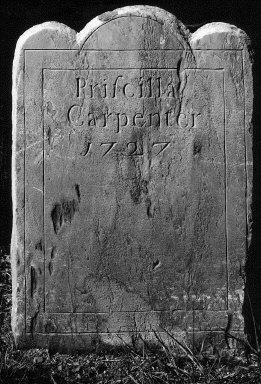 Priſcilla
Carpenter
1727